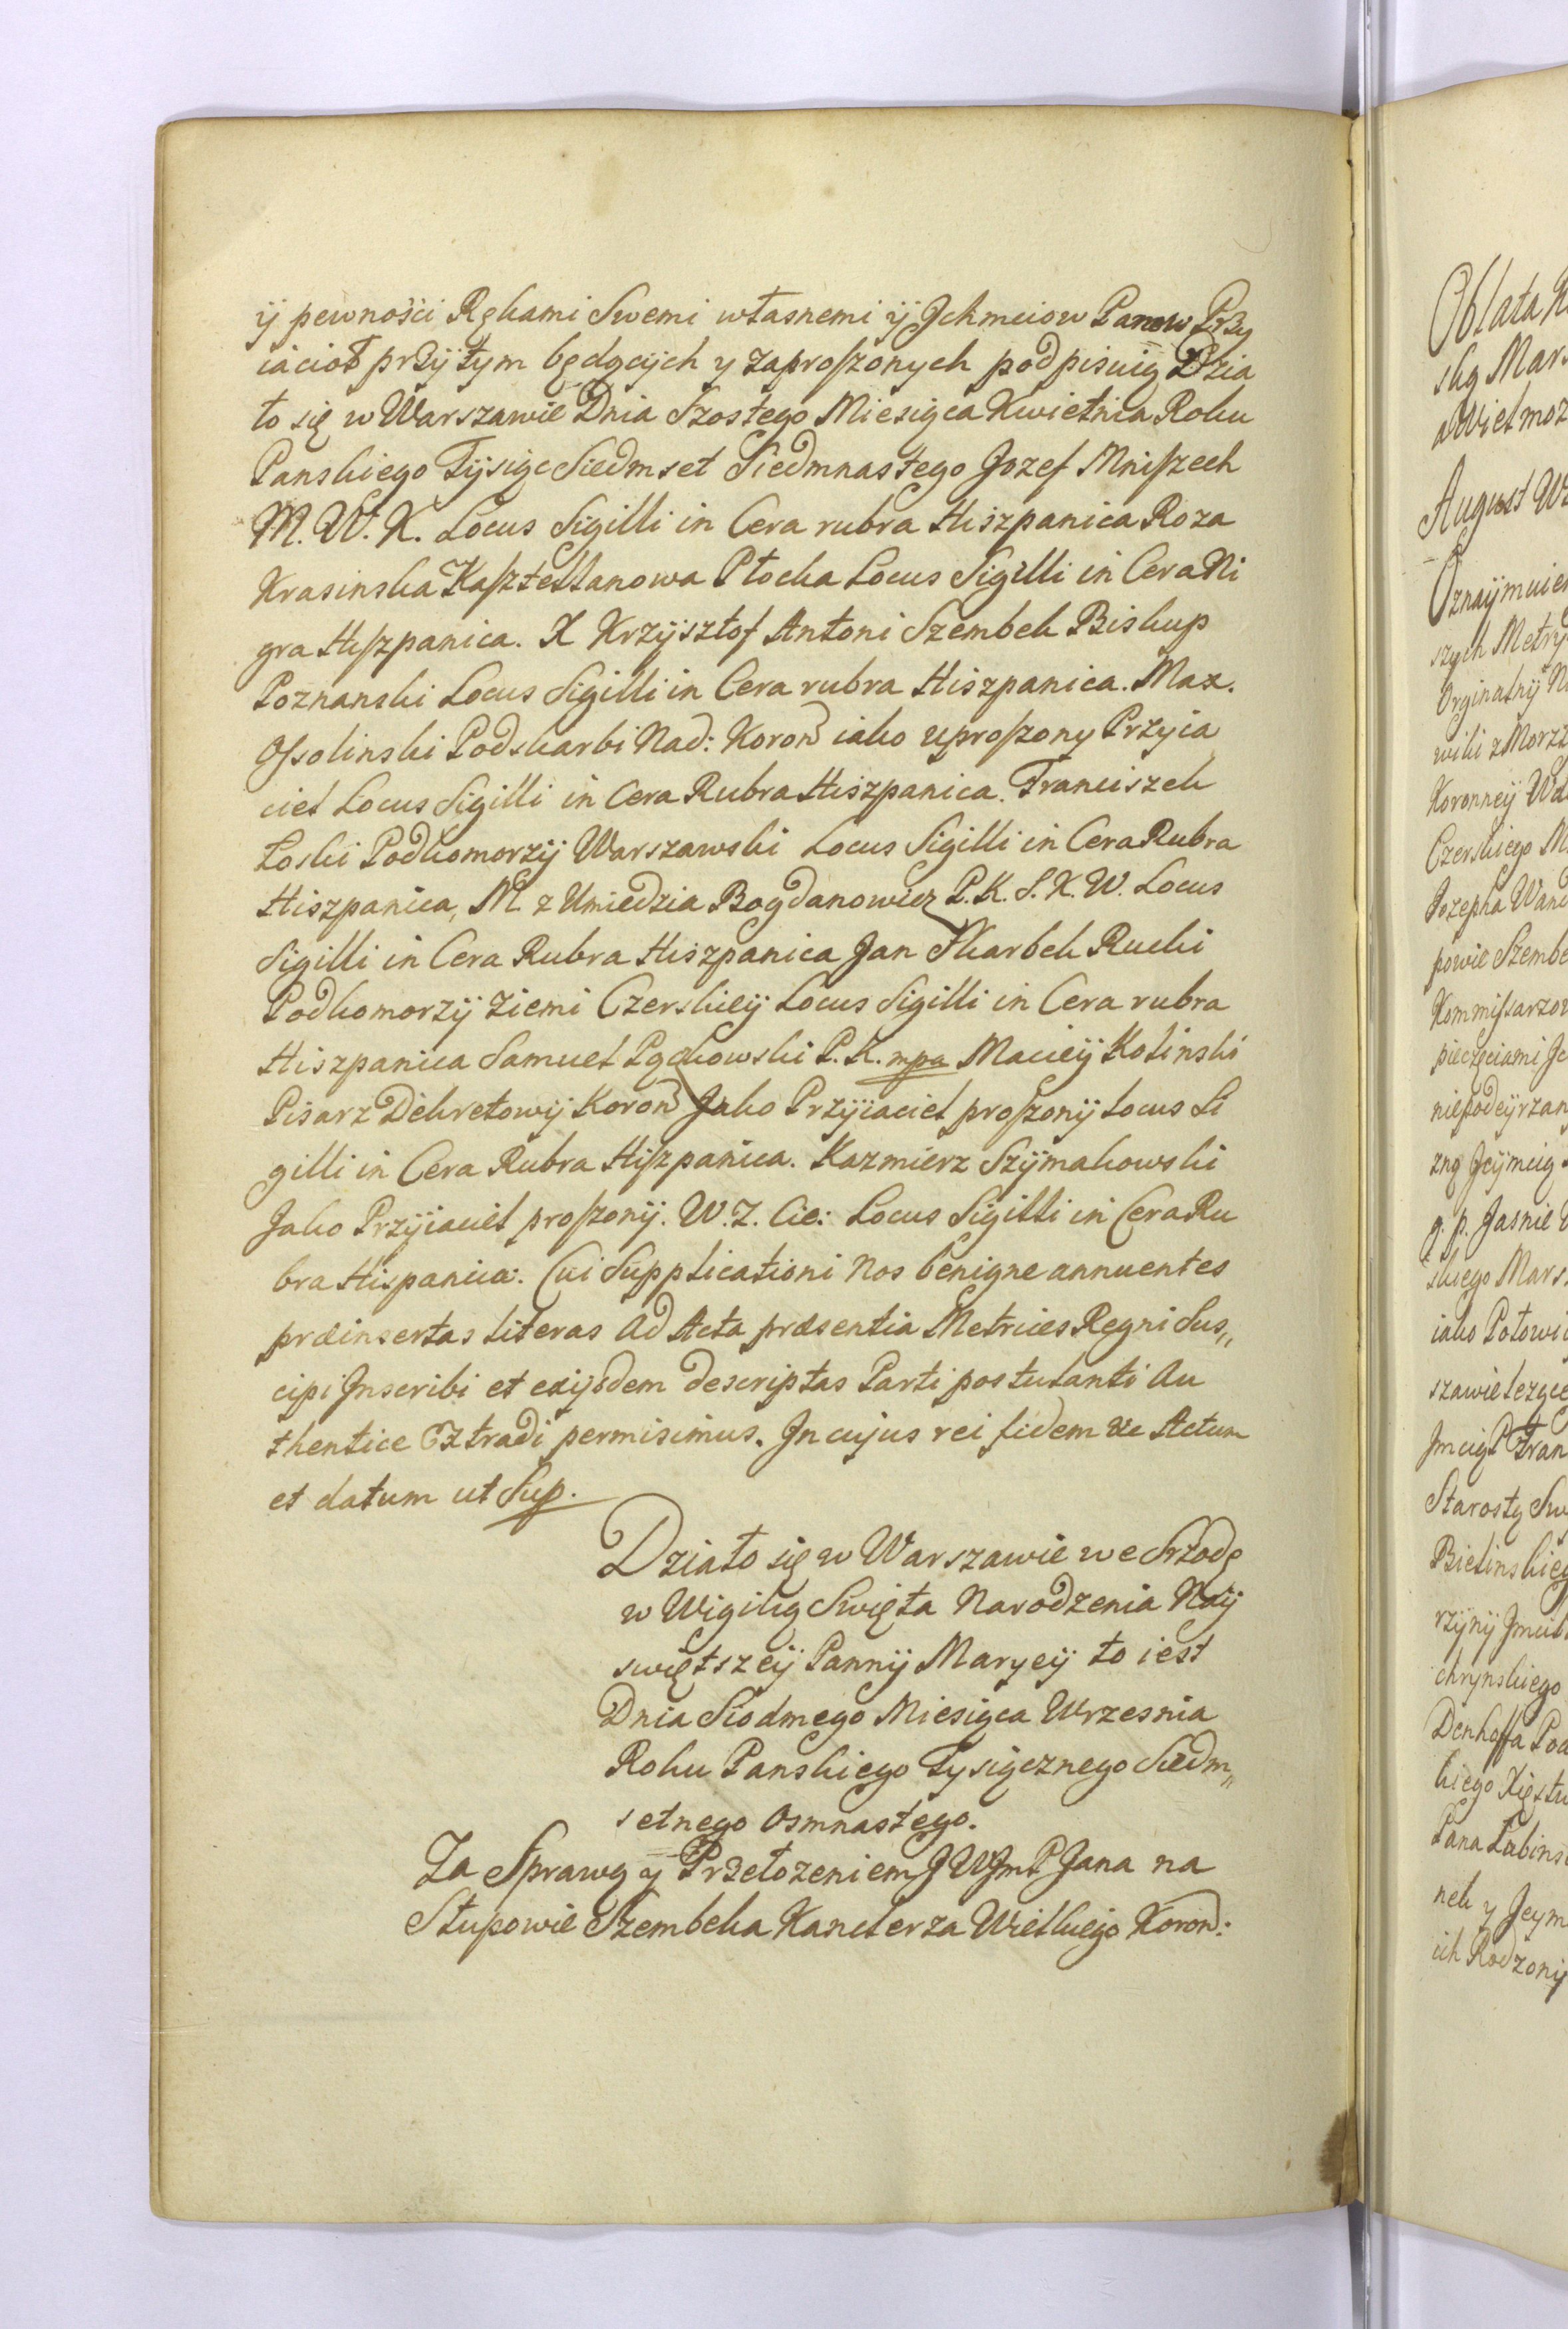 ÿ pewności Rękami Swemi własnemi ÿ Jchmciow Panow Przy
iacioł przÿ tym będącÿch y zaproszonych podpisuią Dzia
ło się w Warszawie Dnia Szostego Miesiąca Kwietnia Roku
Panskiego Tÿsiąc Siedmset Siedmnastego Jozef Mniszech
M. W. K. Locus Sigilli in Cera rubra Hiszpanica Roza
Krasinska Kasztellanowa Płocka Locus Sigilli in Cera Ni
gra Hiszpanica. X Krzÿsztof Antoni Szembek Biskup
Poznanski Locus Sigilli in Cera rubra Hiszpanica. Max.
Ossolinski Podskarbi Nad: Koron iako uproszony Przyia
ciel Locus Sigilli in Cera Rubra Hiszpanica. Franciszek
Loski Podkomorzÿ Warszawski Locus Sigilli in Cera Rubra
Hiszpanica, M. z Umiedzia Bogdanowicz P. K. S. K. W. Locus
Sigilli in Cera Rubra Hiszpanica Jan Skarbek Rucki
Podkomorzÿ Ziemi Czerskieÿ Locus Sigilli in Cera rubra
Hiszpanica Samuel Pąckowski P. K. mpa Macieÿ Kolinski
Pisarz Dekretowÿ Koron Jako Przÿiaciel proszonÿ Locus Si
gilli in Cera Rubra Hiszpanica. Kazmierz Szÿmakowski
Jako Przÿiaciel proszonÿ. W. Z. Cie: Locus Sigilli in Cera Ru
bra Hispanica: Cui Supplicationi Nos benigne annuentes
præinsertas literas Ad Acta præsentia Metrices Regni Sus„
cipi Jnscribi et exijsdem descriptas Parti postulanti Au
thentice Extradi permisimus. Jn cujus rei fidem &c Actum
et datum ut Sup.
Działo się w Warszawie we Srzodę
w Wigilią Swięta Narodzenia Naÿ
swiętszeÿ Pannÿ Maryeÿ to iest
Dnia Siodmego Miesiąca Wrzesnia
Roku Panskiego Tysiącznego Siedm„
setnego Osmnastego.
Za Sprawą y Przełozeniem J W Jm P Jana na
Słupowie Szembeka Kanclerza Wielkiego Koron:
Oblata
ską Mar
a Wielmoz
August
Oznaÿmuie
szych Metrÿ
Orginalnÿ
wiki z Morzt
Koronneÿ
Czerskiego
Jozepha Wand
powie Szembe
Kommissarzow
pieczęciami
niepodeÿrzan
zną Jeÿmcią
g. p. Jasnie
skiego Mars
iako Połowi
szawie lezące
Jmcią P Fran
Starostą Sw
Bielinskieg
rzÿnÿ Jmci
chrynskiego
Denhoffa Pod
kiego Xięstw
Pana Lubins
nek y Jeym
ich Rodzonÿ